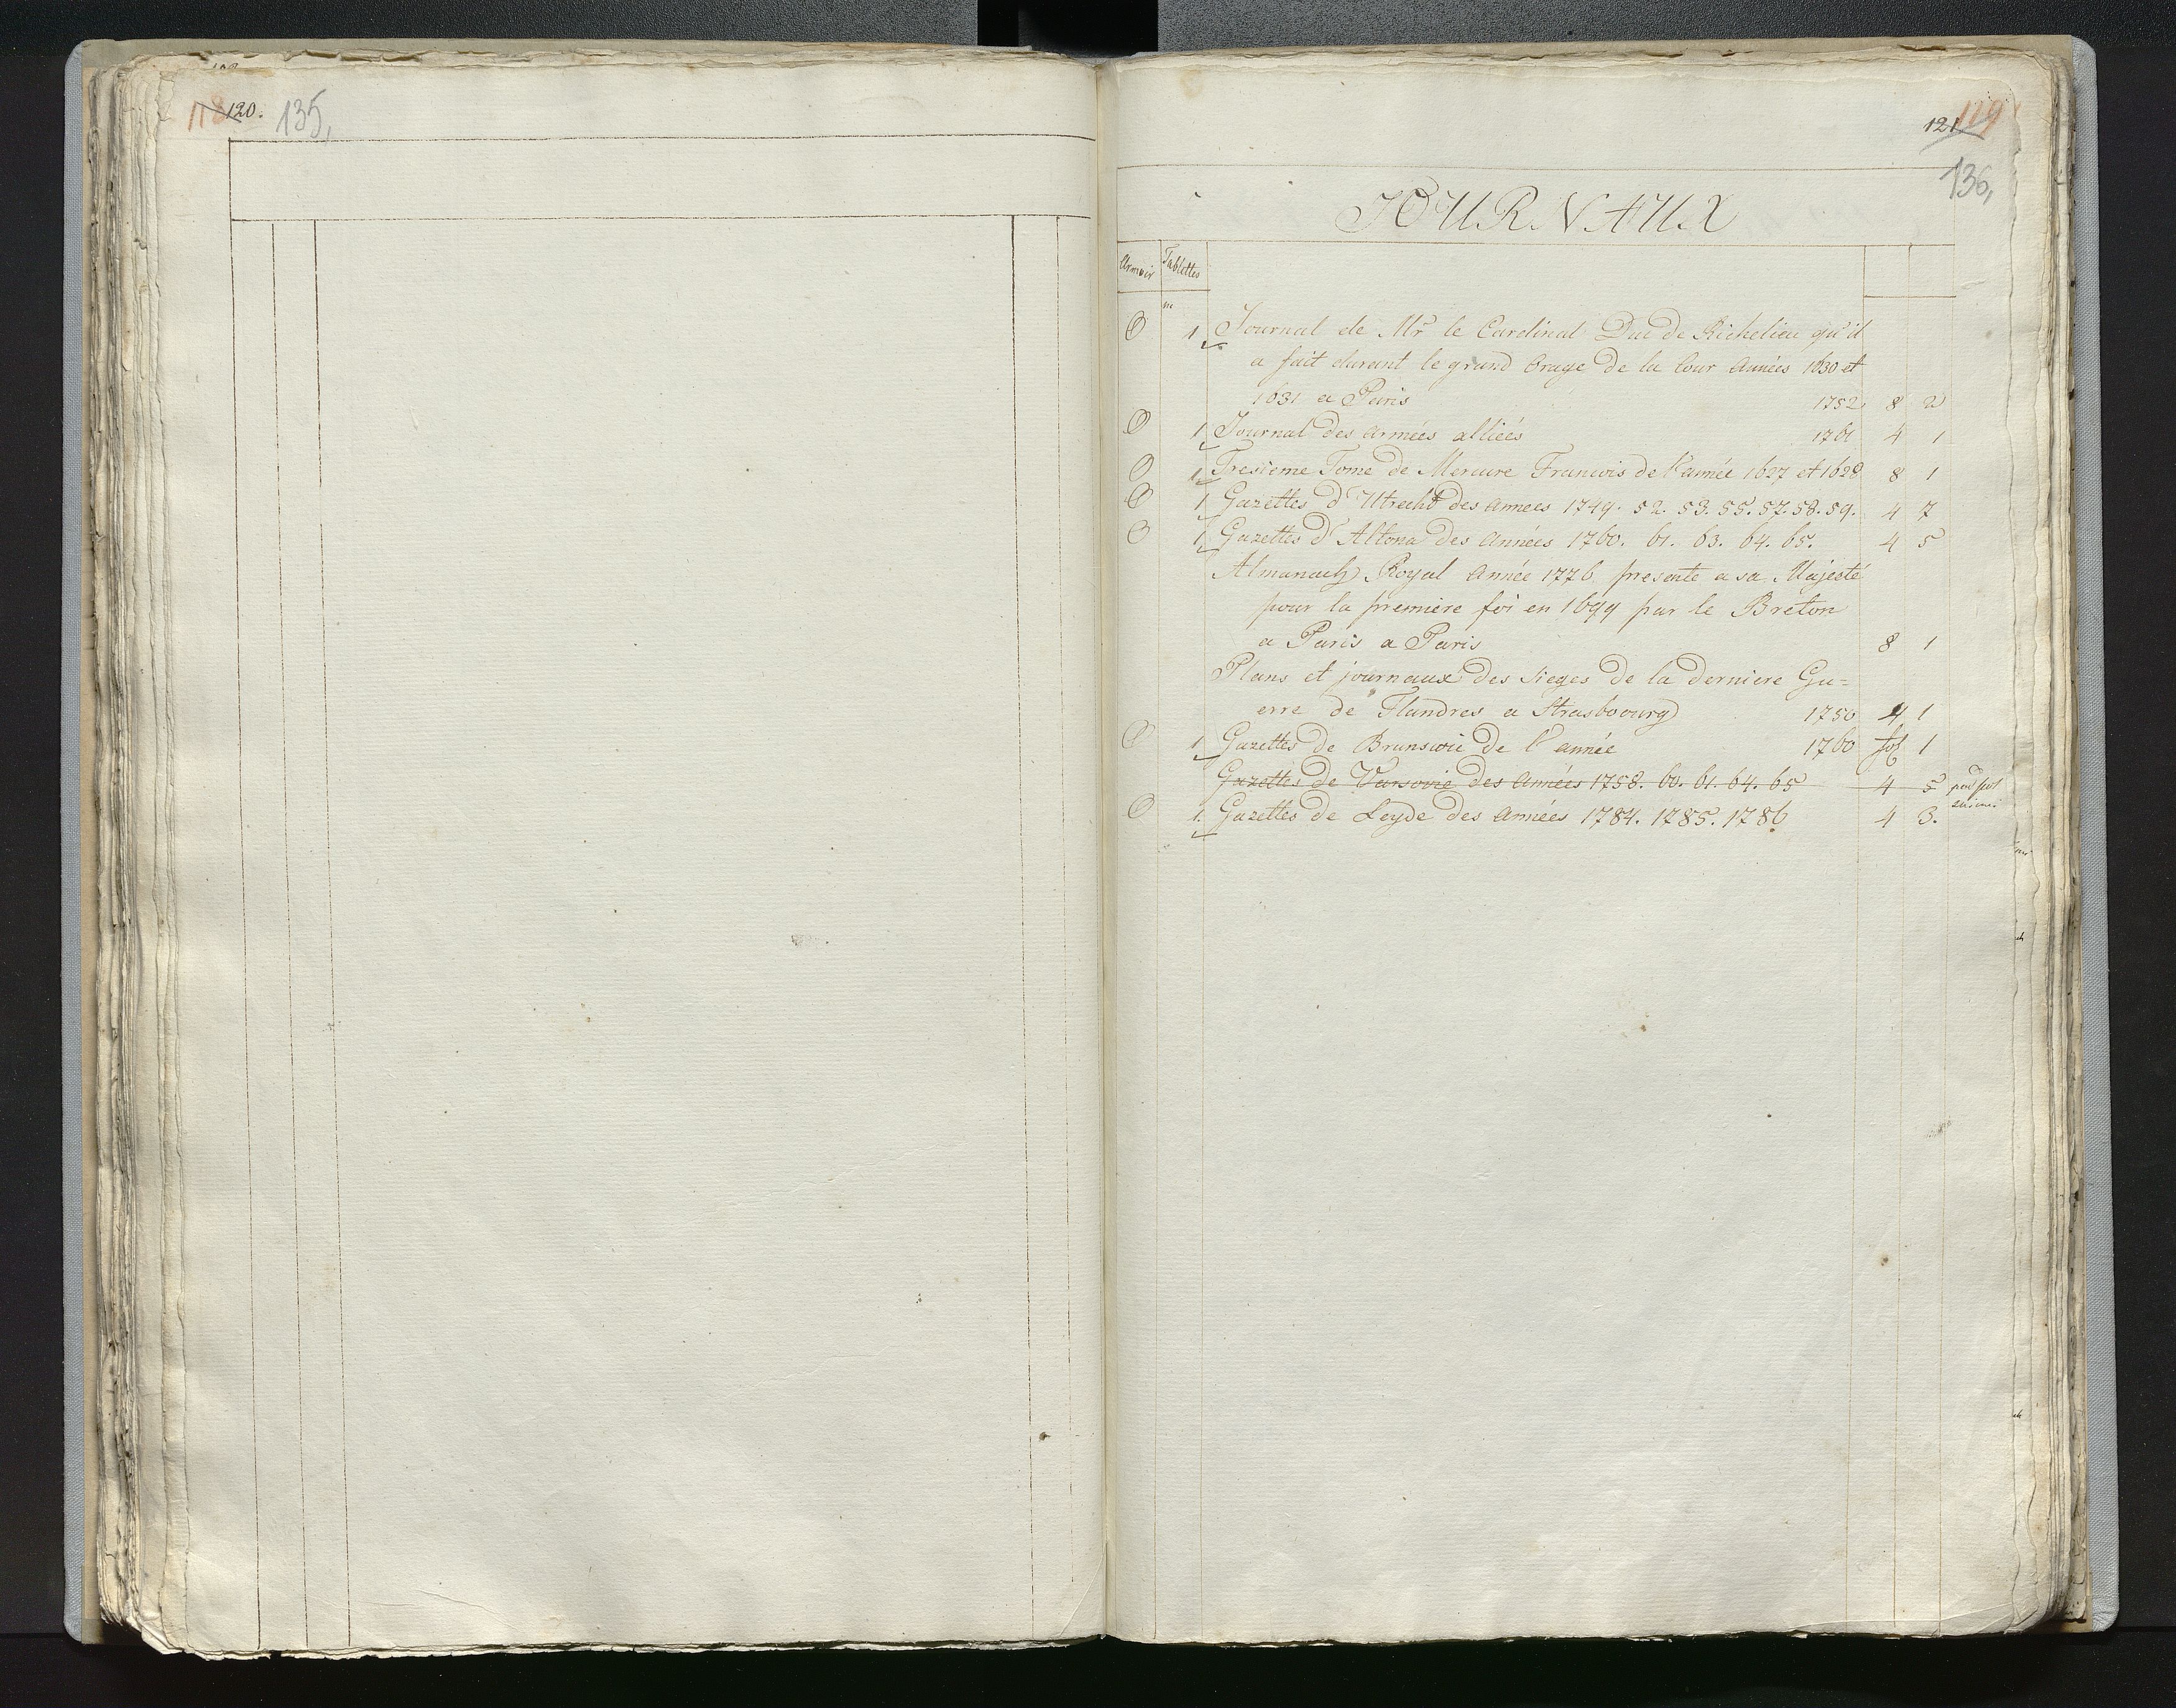 118 120. 135,
121 119
136,
JOURNAUX
Armoir Tablettes
O 1 Journal de Mr le Cardinal Duc de Richelieu qu'il
a fait durant le grand Orage de la Cour Années 1630 et
1631 a Paris 1752 8 2
O 1 Journal des Armées alliées 1761 4 1
O 1 Tresieme Tome de Mercure Francois de l'année 1627 et 1628 8 1
O 1 Gazettes d'Utrecht des Annees 1749. 52. 53. 55. 57. 58. 59. 4 7
O 1 Gazettes d'Altona des Années 1760. 61. 63. 64. 65. 4 5
Almanach Royal Année 1776 presente a sa Majesté
pour la premiere foi en 1699 par le Breton
a Paris a Paris 8 1
Plans et journaux des Sieges de la derniere Gu=
erre de Flandres a Strasbourg 1750 4 1
O 1 Gazettes de Brunswic de l'année 1760 fol 1
Gazettes de Varsovie des Années 1758. 60. 61. 64. 65 4 5
O 1. Gazettes de Leyde des Années 1784. 1785. 1786 4 3.